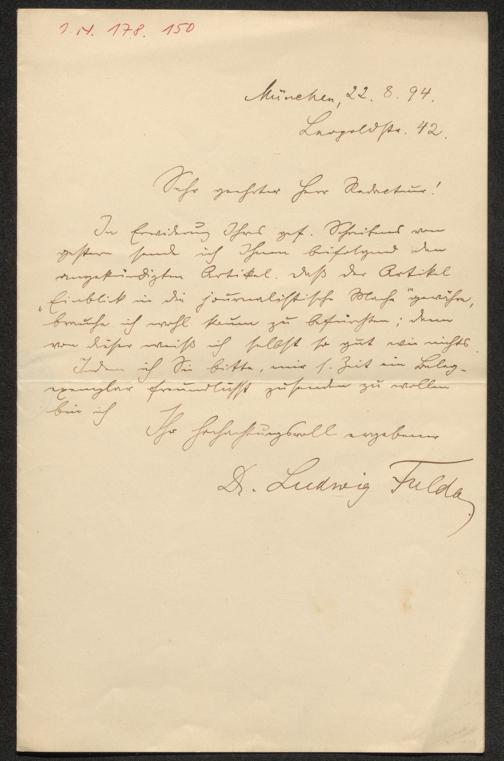 I.N. 178.150
München, 22. 8. 94.
Leopoldstr. 42.
Sehr geehrter Herr Redacteur!
In Erwiderung Ihres gef. Schreibens von
gestern sende ich Ihnen beifolgend den
angekündigten Artikel. Daß der Artikel
„Einblik in die journalistische Mache" gewähre,
brauche ich wohl kaum zu befürchten; denn
von dieser weiß ich selbst so gut wie nichts.
Indem ich Sie bitte, mir s. Zeit ein Beleg-
exemplar freundlichst zusenden zu wollen
bin ich
Ihr hochachtungsvoll ergebener
Dr. Ludwig Fulda.